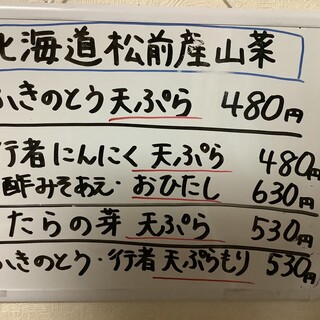 北海道松前産山菜
ふきのとう 天ぷら 480円
行者にんにく 天ぷら 480円
酢みそあえ・おひたし 630円
たらの芽 天ぷら 530円
ふきのとう・行者 天ぷらもり 530円